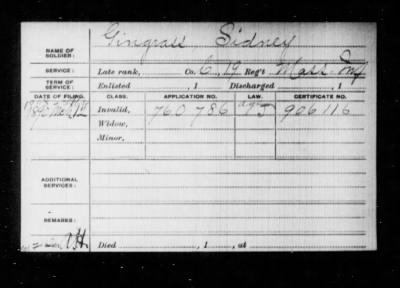 Gingrass Sidney
NAME OF SOLDIER:
SERVICE: Late rank, Co. C, 19 Reg't Mass. Inf
TERM OF SERVICE: Enlisted , 1 Discharged , 1
DATE OF FILING. CLASS. APPLICATION NO. LAW. CERTIFICATE NO.
Invalid, 760 786 906 116
Widow,
Minor,
ADDITIONAL SERVICES:
REMARKS:
Died , 1 , at